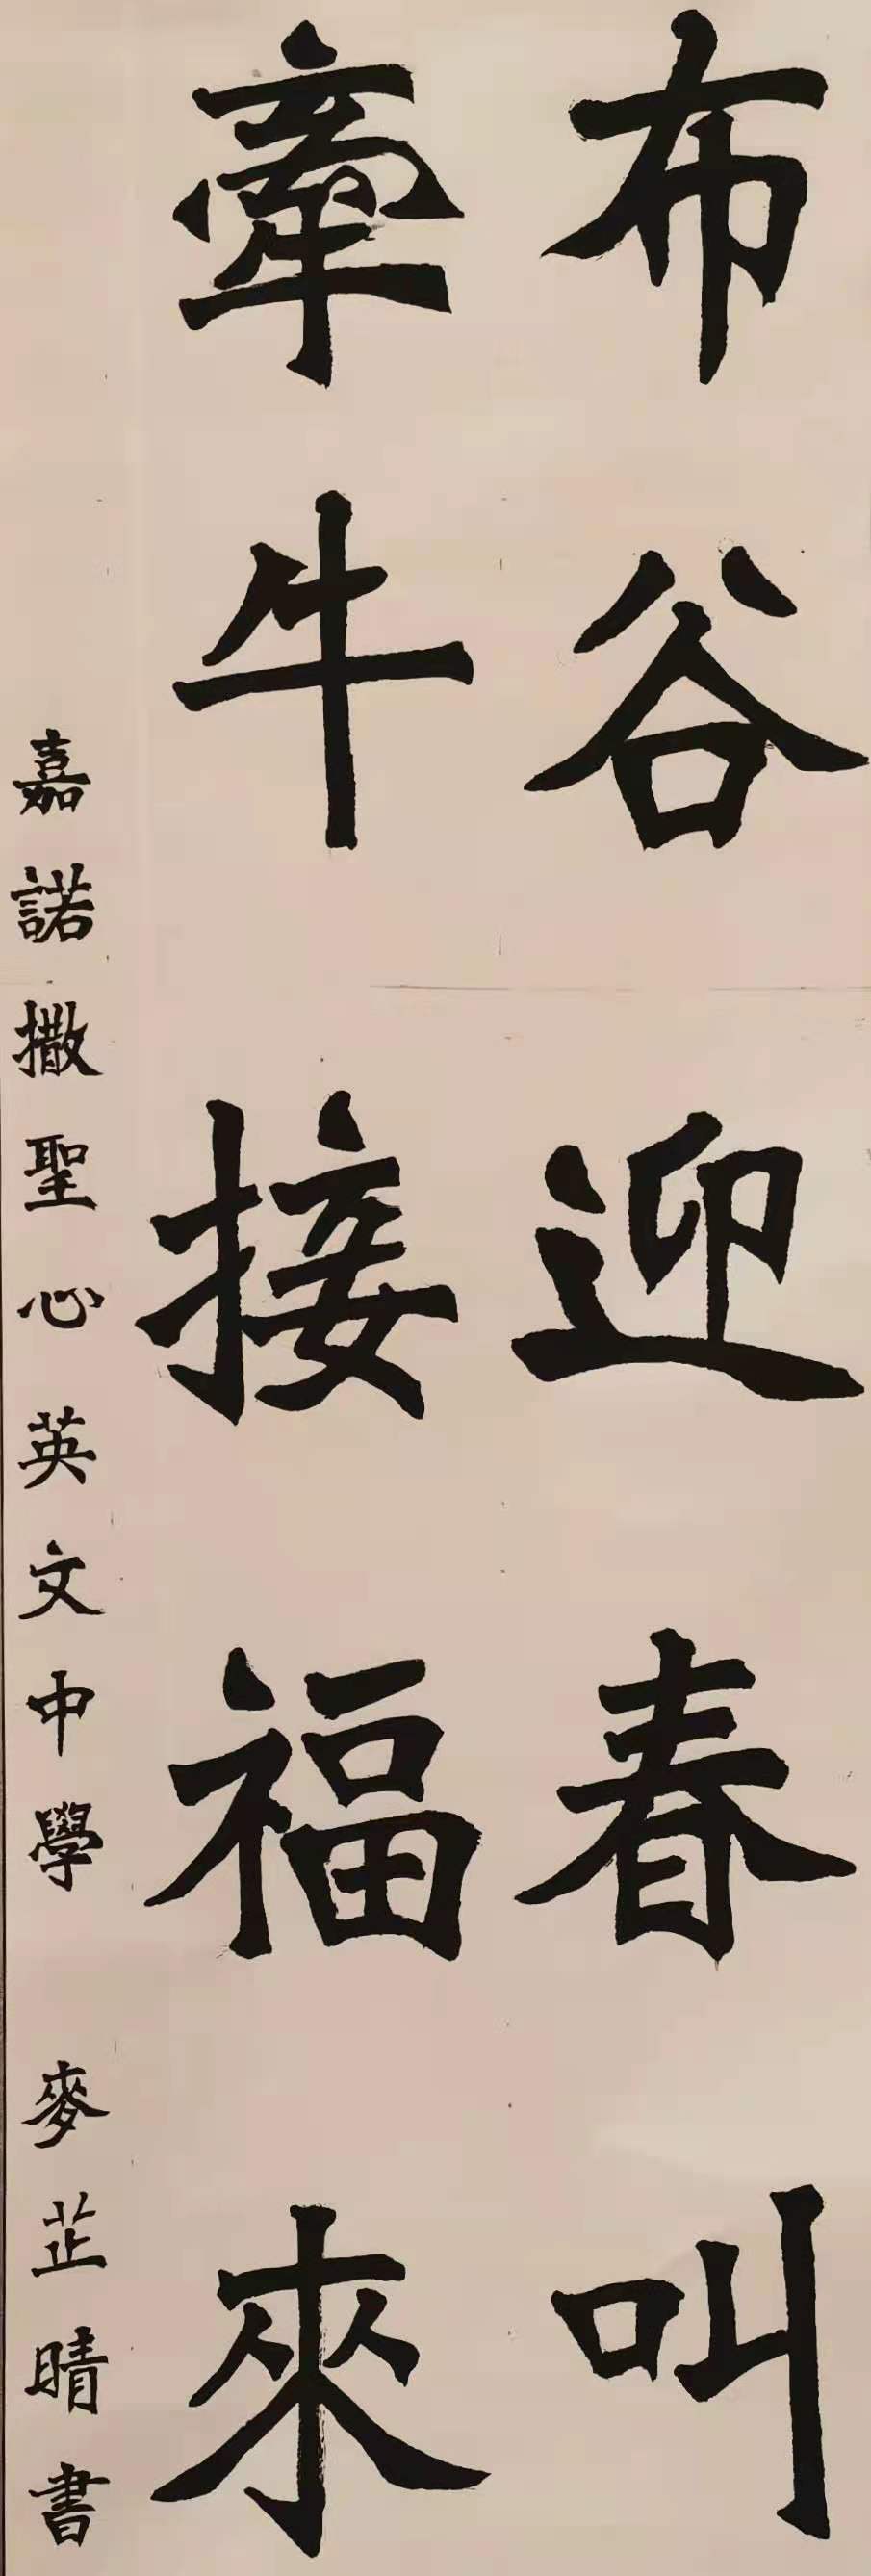 布谷迎春叫
牽牛接福來
嘉諾撒聖心英文中學 麥芷晴書